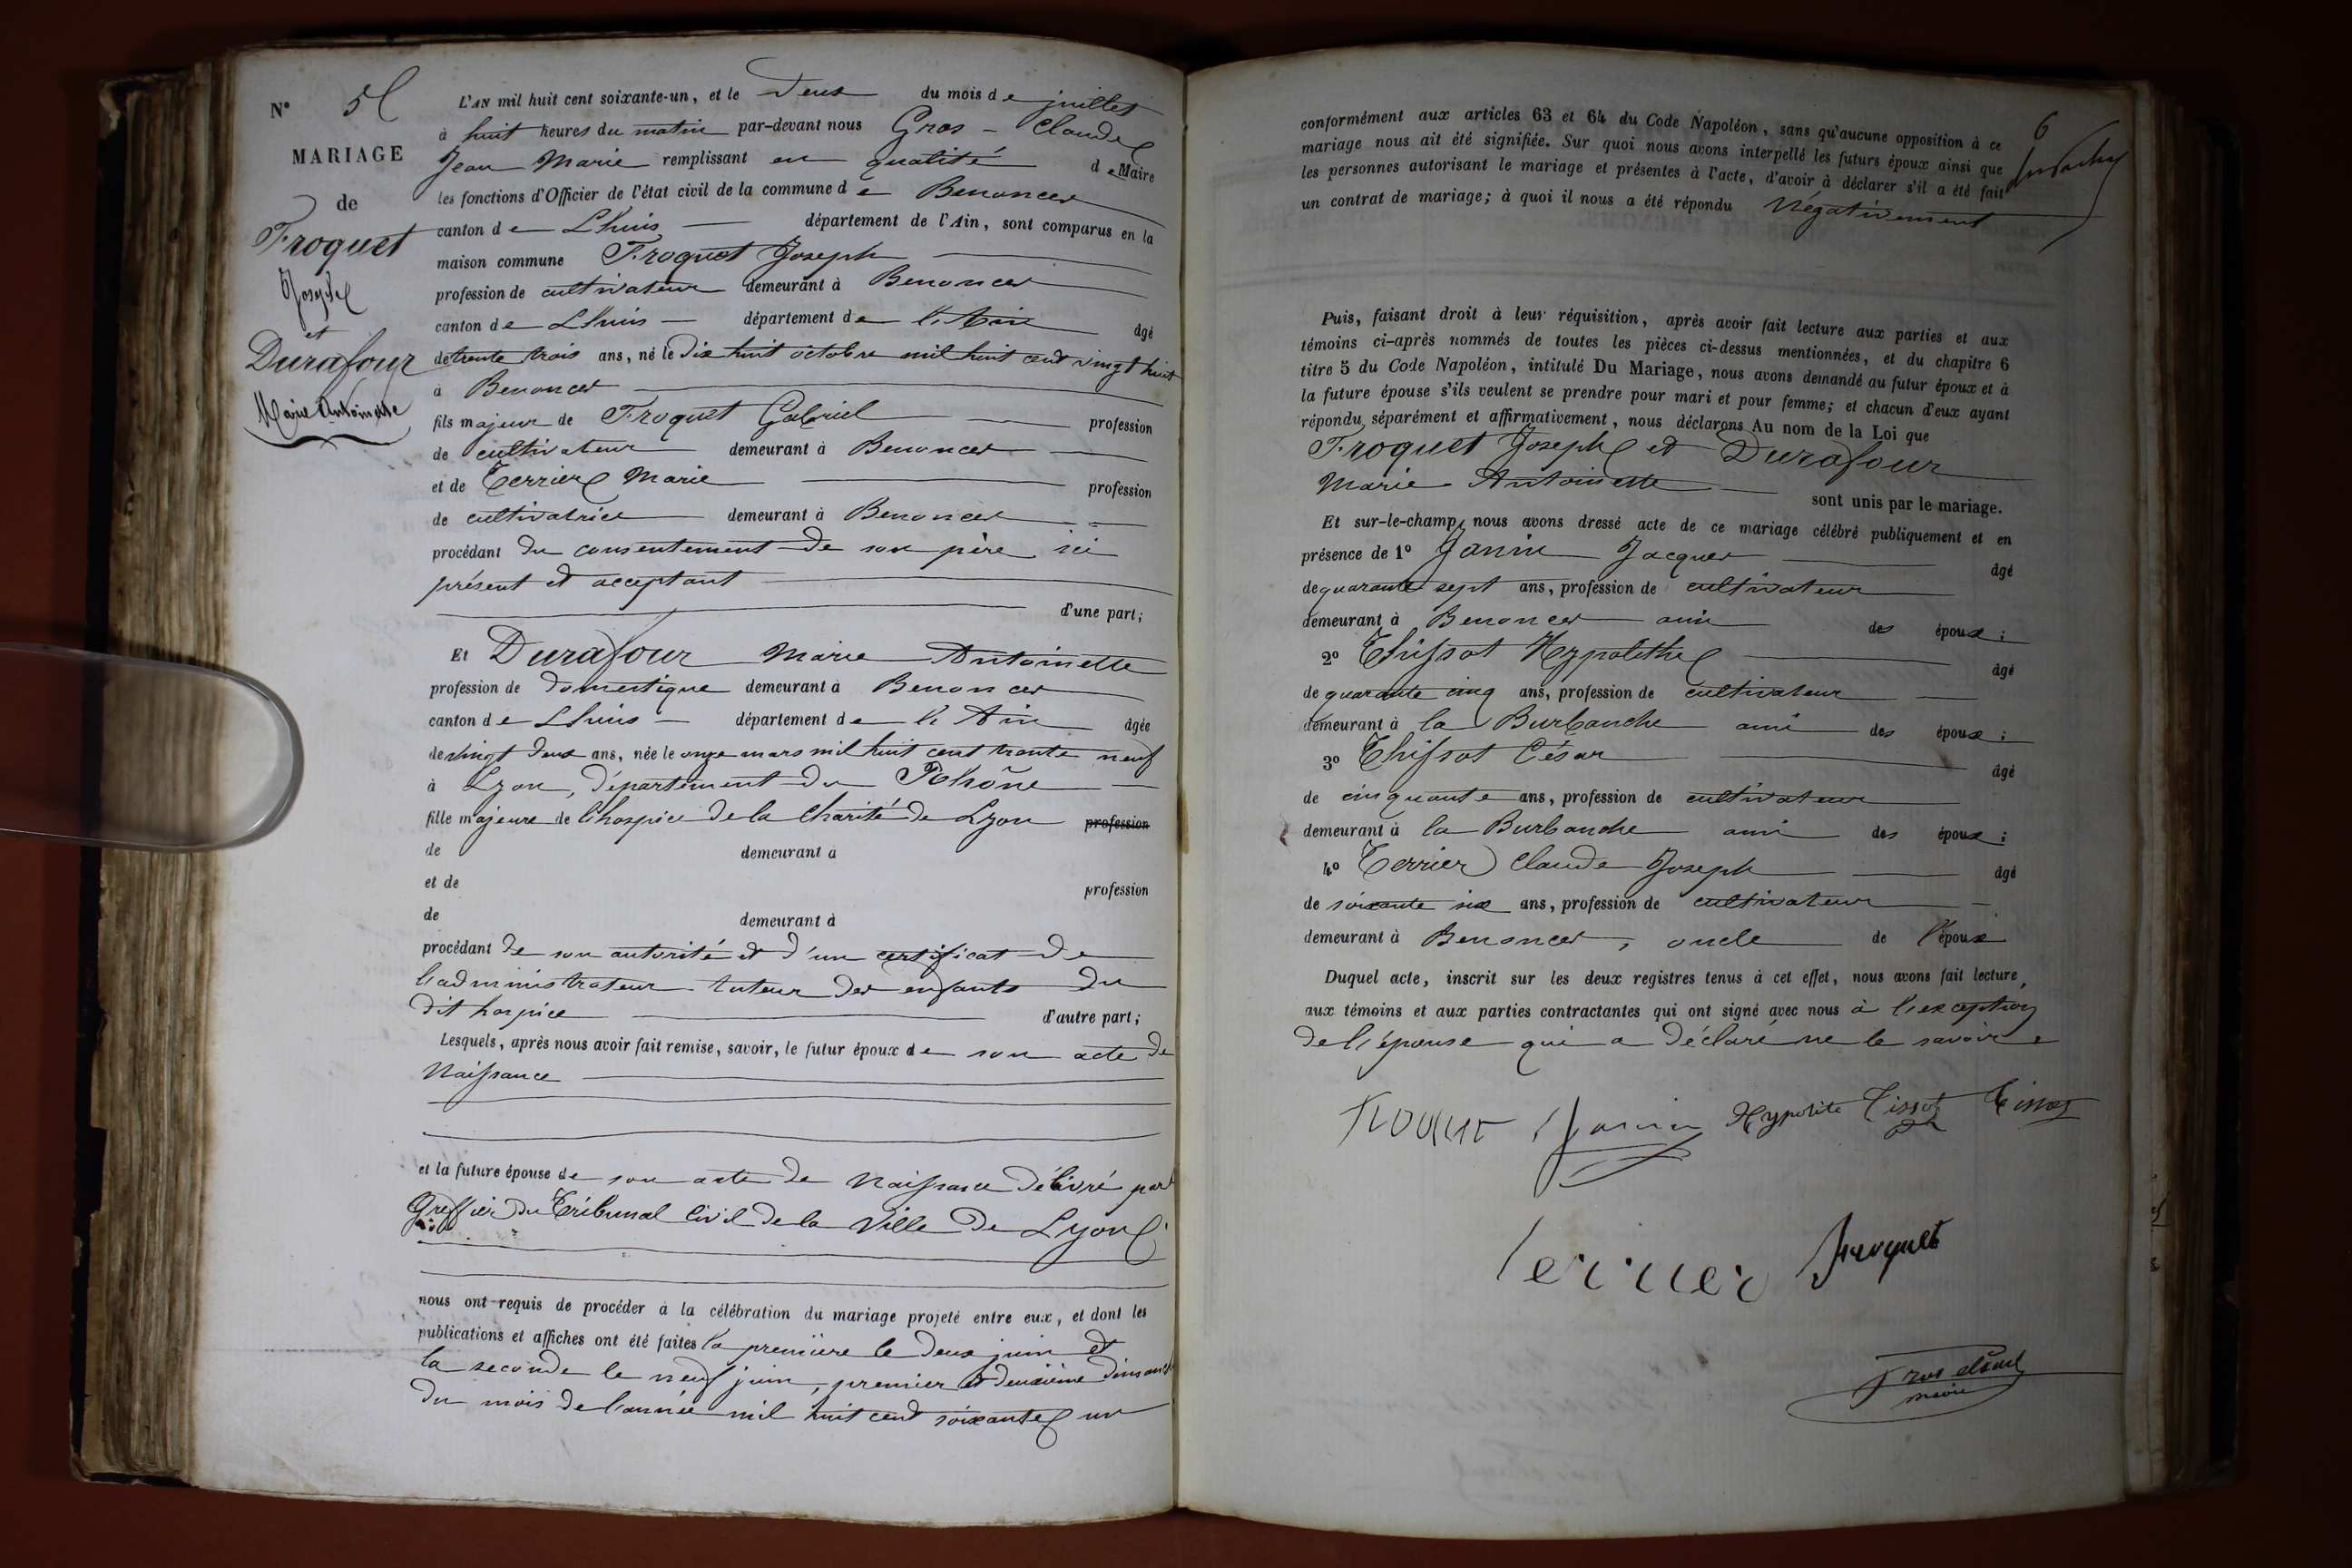 N° 5
MARIAGE
de
Froquet
Joseph
et
Durafour
Marie Antoinette
L'AN mil huit cent soixante-un, et le Deux du mois de juillet
à huit heures du matin par-devant nous Gros-Claude
Jean Marie remplissant en qualité de Maire
les fonctions d'Officier de l'état civil de la commune de Benonces
canton de Lhuis département de l'Ain, sont comparus en la
maison commune Froquet Joseph
profession de cultivateur demeurant à Benonces
canton de Lhuis département de l'Ain âgé
de trente trois ans, né le Dix huit octobre mil huit cent vingt huit
à Benonces
fils majeur de Froquet Gabriel profession
de cultivateur demeurant à Benonces
et de Terrier Marie profession
de cultivatrice demeurant à Benonces
procédant du consentement de son père ici
présent et acceptant
d'une part;
Et Durafour Marie Antoinette
profession de domestique demeurant à Benonces
canton de Lhuis département de l'Ain âgée
de vingt deux ans, née le onze mars mil huit cent trente neuf
à Lyon, département du Rhône
fille majeure de l'hospice de la Charité de Lyon profession
de demeurant à
et de profession
de demeurant à
procédant de son autorité et d'un certificat de
l'administrateur tuteur des enfants du
dit hospice d'autre part;
Lesquels, après nous avoir fait remise, savoir, le futur époux de son acte de
Naissance
et la future épouse de son acte de Naissance délivré par
Greffier du Tribunal Civil de la Ville de Lyon
nous ont requis de procéder à la célébration du mariage projeté entre eux, et dont les
publications et affiches ont été faites la première le deux juin et
la seconde le neuf juin, premier et deuxième dimanche
du mois de l'année mil huit cent soixante un
6
conformément aux articles 63 et 64 du Code Napoléon, sans qu'aucune opposition à ce
mariage nous ait été signifiée. Sur quoi nous avons interpellé les futurs époux ainsi que
les personnes autorisant le mariage et présentes à l'acte, d'avoir à déclarer s'il a été fait
un contrat de mariage; à quoi il nous a été répondu Négativement
Puis, faisant droit à leur réquisition, après avoir fait lecture aux parties et aux
témoins ci-après nommés de toutes les pièces ci-dessus mentionnées, et du chapitre 6
titre 5 du Code Napoléon, intitulé Du Mariage, nous avons demandé au futur époux et à
la future épouse s'ils veulent se prendre pour mari et pour femme; et chacun d'eux ayant
répondu séparément et affirmativement, nous déclarons Au nom de la Loi que
Froquet Joseph et Durafour
Marie Antoinette sont unis par le mariage.
Et sur-le-champ, nous avons dressé acte de ce mariage célébré publiquement et en
présence de 1° Janin Jacques âgé
de quarante sept ans, profession de cultivateur
demeurant à Benonces ami des époux;
2° Thissot Hyppolithe âgé
de quarante cinq ans, profession de cultivateur
demeurant à la Burbanche ami des époux;
3° Thissot César âgé
de cinquante ans, profession de cultivateur
demeurant à la Burbanche ami des époux;
4° Terrier Claude Joseph âgé
de soixante six ans, profession de cultivateur
demeurant à Benonces, oncle de l'époux
Duquel acte, inscrit sur les deux registres tenus à cet effet, nous avons fait lecture,
aux témoins et aux parties contractantes qui ont signé avec nous à l'exception
de l'épouse qui a déclaré ne le savoir
Janin Hypolite Tissot Tissot
Terrier Froquet
Gros claude
maire